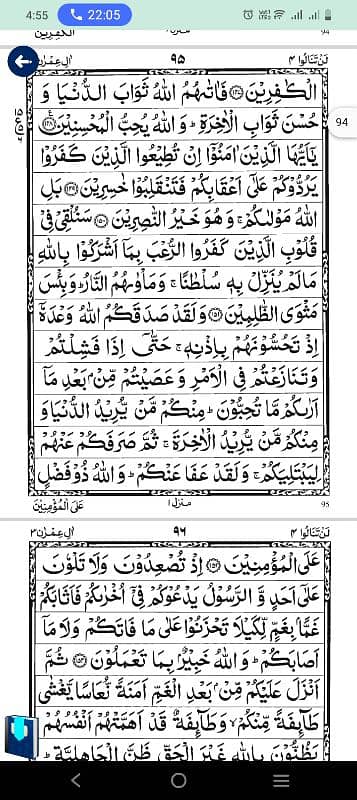 4:55 22:05
الكٰفِرِيْنَ 94
لَنْ تَنَالُوا ٤ ٩٥ اٰلِ عِمْرٰن ٣
الْكٰفِرِيْنَ ۝١٤٧ فَاٰتٰىهُمُ اللّٰهُ ثَوَابَ الدُّنْيَا وَ
حُسْنَ ثَوَابِ الْاٰخِرَةِ ؕ وَاللّٰهُ يُحِبُّ الْمُحْسِنِيْنَ ۝١٤٨
94
يٰۤاَيُّهَا الَّذِيْنَ اٰمَنُوْۤا اِنْ تُطِيْعُوا الَّذِيْنَ كَفَرُوْا
يَرُدُّوْكُمْ عَلٰۤى اَعْقَابِكُمْ فَتَنْقَلِبُوْا خٰسِرِيْنَ ۝١٤٩ بَلِ
اللّٰهُ مَوْلٰىكُمْ ۚ وَهُوَ خَيْرُ النّٰصِرِيْنَ ۝١٥٠ سَنُلْقِيْ فِيْ
قُلُوْبِ الَّذِيْنَ كَفَرُوا الرُّعْبَ بِمَاۤ اَشْرَكُوْا بِاللّٰهِ
مَا لَمْ يُنَزِّلْ بِهٖ سُلْطٰنًا ۚ وَمَاْوٰىهُمُ النَّارُ ؕ وَبِئْسَ
مَثْوَى الظّٰلِمِيْنَ ۝١٥١ وَلَقَدْ صَدَقَكُمُ اللّٰهُ وَعْدَهٗۤ
اِذْ تَحُسُّوْنَهُمْ بِاِذْنِهٖ ۚ حَتّٰۤى اِذَا فَشِلْتُمْ
وَتَنَازَعْتُمْ فِي الْاَمْرِ وَعَصَيْتُمْ مِّنْۢ بَعْدِ مَاۤ
اَرٰىكُمْ مَّا تُحِبُّوْنَ ؕ مِنْكُمْ مَّنْ يُّرِيْدُ الدُّنْيَا وَ
مِنْكُمْ مَّنْ يُّرِيْدُ الْاٰخِرَةَ ۚ ثُمَّ صَرَفَكُمْ عَنْهُمْ
لِيَبْتَلِيَكُمْ ۚ وَلَقَدْ عَفَا عَنْكُمْ ؕ وَاللّٰهُ ذُوْ فَضْلٍ
عَلَى الْمُؤْمِنِيْنَ منزل ١ 95
لَنْ تَنَالُوا ٤ ٩٦ اٰلِ عِمْرٰن ٣
عَلَى الْمُؤْمِنِيْنَ ۝١٥٢ اِذْ تُصْعِدُوْنَ وَلَا تَلْوٗنَ
عَلٰۤى اَحَدٍ وَّ الرَّسُوْلُ يَدْعُوْكُمْ فِيْۤ اُخْرٰىكُمْ فَاَثَابَكُمْ
غَمًّۢا بِغَمٍّ لِّكَيْلَا تَحْزَنُوْا عَلٰى مَا فَاتَكُمْ وَلَا مَاۤ
اَصَابَكُمْ ؕ وَاللّٰهُ خَبِيْرٌۢ بِمَا تَعْمَلُوْنَ ۝١٥٣ ثُمَّ
اَنْزَلَ عَلَيْكُمْ مِّنْۢ بَعْدِ الْغَمِّ اَمَنَةً نُّعَاسًا يَّغْشٰى
طَآئِفَةً مِّنْكُمْ ۙ وَطَآئِفَةٌ قَدْ اَهَمَّتْهُمْ اَنْفُسُهُمْ
يَظُنُّوْنَ بِاللّٰهِ غَيْرَ الْحَقِّ ظَنَّ الْجَاهِلِيَّةِ ؕ